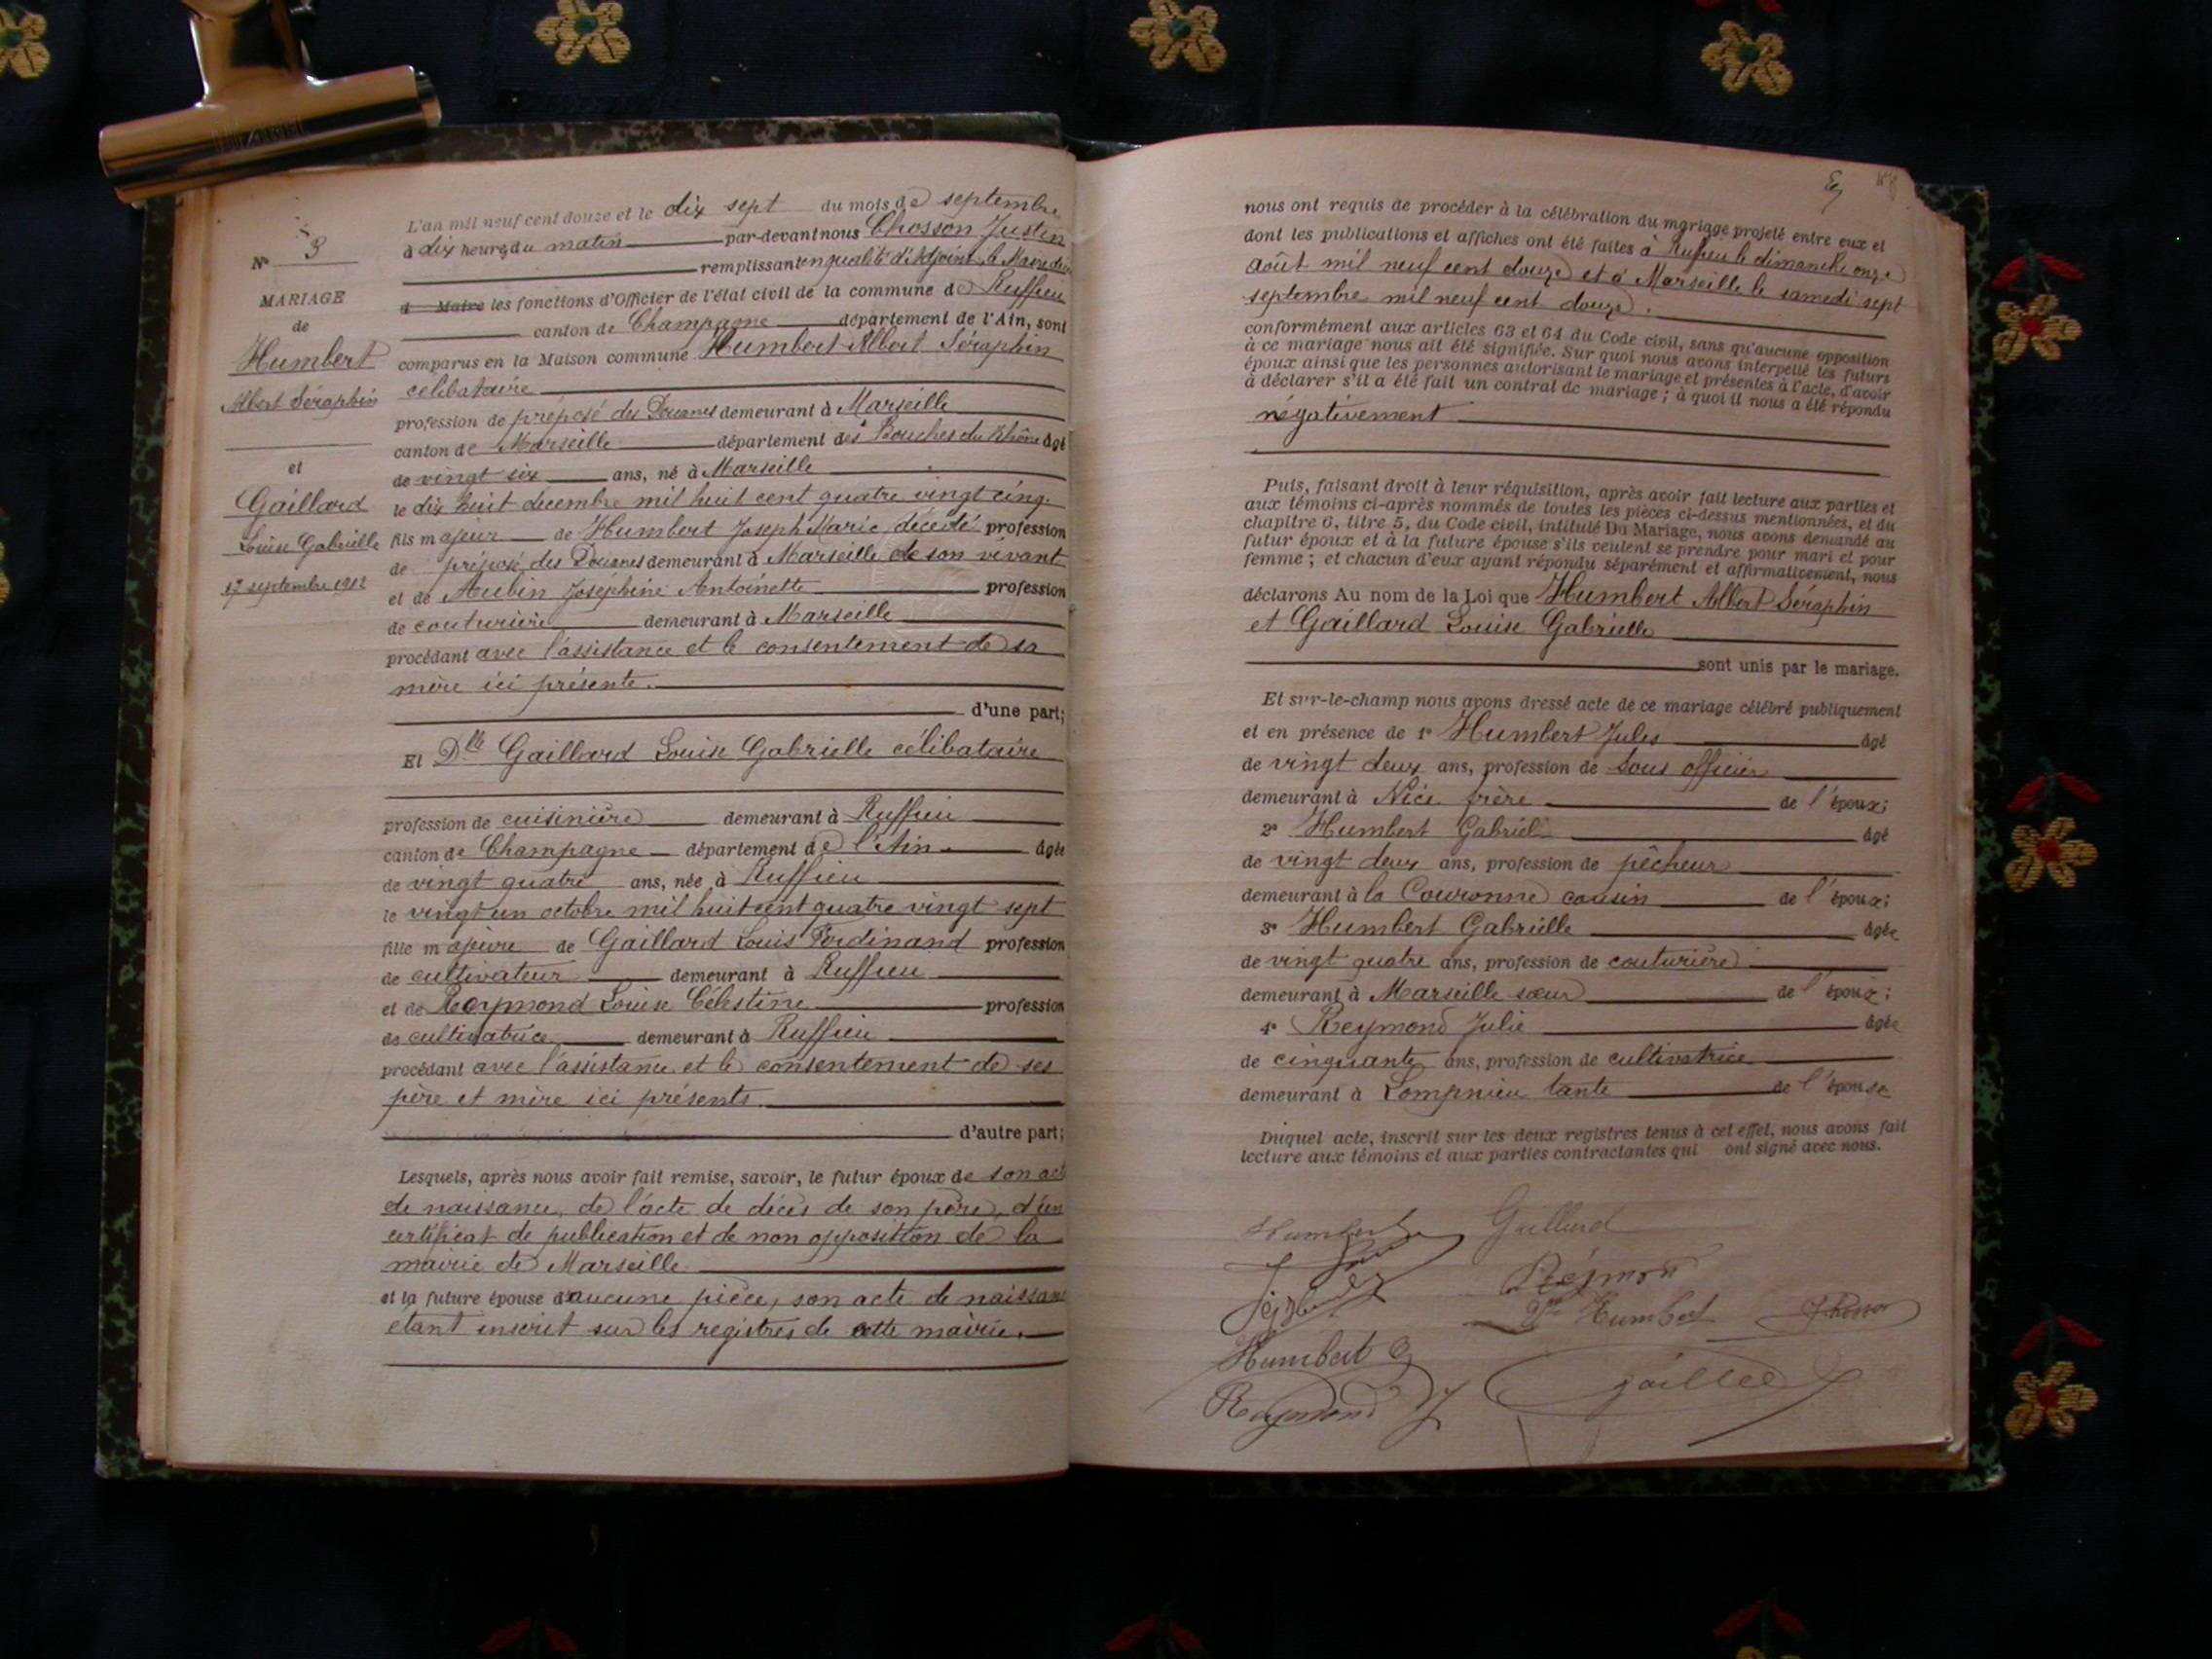 N° 3
MARIAGE
de
Humbert
Albert Séraphin
et
Gaillard
Louise Gabrielle
17 septembre 1912
L'an mil neuf cent douze et le dix sept du mois de septembre
à dix heures du matin par-devant nous Chosson Justin
remplissant en qualité d'Adjoint, le Maire
d Maire les fonctions d'Officier de l'état civil de la commune de Ruffieu
canton de Champagne département de l'Ain, sont
comparus en la Maison commune Humbert Albert Séraphin
célibataire
profession de préposé des Douanes demeurant à Marseille
canton de Marseille département des Bouches du Rhône âgé
de vingt six ans, né à Marseille
le dix huit decembre mil huit cent quatre vingt cinq
fils majeur de Humbert Joseph Marie décédé profession
de préposé des Douanes demeurant à Marseille de son vivant
et de Aubin Joséphine Antoinette profession
de couturière demeurant à Marseille
procédant avec l'assistance et le consentement de sa
mère ici présente.
d'une part;
Et Dlle Gaillard Louise Gabrielle célibataire
profession de cuisinière demeurant à Ruffieu
canton de Champagne département de l'Ain âgée
de vingt quatre ans, née à Ruffieu
le vingt un octobre mil huit cent quatre vingt sept
fille majeure de Gaillard Louis Ferdinand profession
de cultivateur demeurant à Ruffieu
et de Reymond Louise Célestine profession
de cultivatrice demeurant à Ruffieu
procédant avec l'assistance et le consentement de ses
père et mère ici présents
d'autre part;
Lesquels, après nous avoir fait remise, savoir, le futur époux de son acte
de naissance, de l'acte de décès de son père, d'un
certificat de publication et de non opposition de la
mairie de Marseille
et la future épouse d'aucune pièce, son acte de naissance
etant inscrit sur les registres de cette mairie.
nous ont requis de procéder à la célébration du mariage projeté entre eux et
dont les publications et affiches ont été faites à Ruffieu le dimanche onze
août mil neuf cent douze et à Marseille le samedi sept
septembre mil neuf cent douze.
conformément aux articles 63 et 64 du Code civil, sans qu'aucune opposition
à ce mariage nous ait été signifiée. Sur quoi nous avons interpellé les futurs
époux ainsi que les personnes autorisant le mariage et présentes à l'acte, d'avoir
à déclarer s'il a été fait un contrat de mariage; à quoi il nous a été répondu
négativement
Puis, faisant droit à leur réquisition, après avoir fait lecture aux parties et
aux témoins ci-après nommés de toutes les pièces ci-dessus mentionnées, et du
chapitre 6, titre 5, du Code civil, intitulé Du Mariage, nous avons demandé au
futur époux et à la future épouse s'ils veulent se prendre pour mari et pour
femme; et chacun d'eux ayant répondu séparément et affirmativement, nous
déclarons Au nom de la Loi que Humbert Albert Séraphin
et Gaillard Louise Gabrielle
sont unis par le mariage.
Et sur-le-champ nous avons dressé acte de ce mariage célébré publiquement
et en présence de 1° Humbert Jules âgé
de vingt deux ans, profession de Sous officier
demeurant à Nice frère de l'époux;
2° Humbert Gabriel âgé
de vingt deux ans, profession de pêcheur
demeurant à la Couronne cousin de l'époux;
3° Humbert Gabrielle âgée
de vingt quatre ans, profession de couturière
demeurant à Marseille sœur de l'époux;
4° Reymond Julie âgée
de cinquante ans, profession de cultivatrice
demeurant à Lompnieu tante de l'épouse
Duquel acte, inscrit sur les deux registres tenus à cet effet, nous avons fait
lecture aux témoins et aux parties contractantes qui ont signé avec nous.
Humbert Gaillard
Humbert
Humbert G
Reymond J